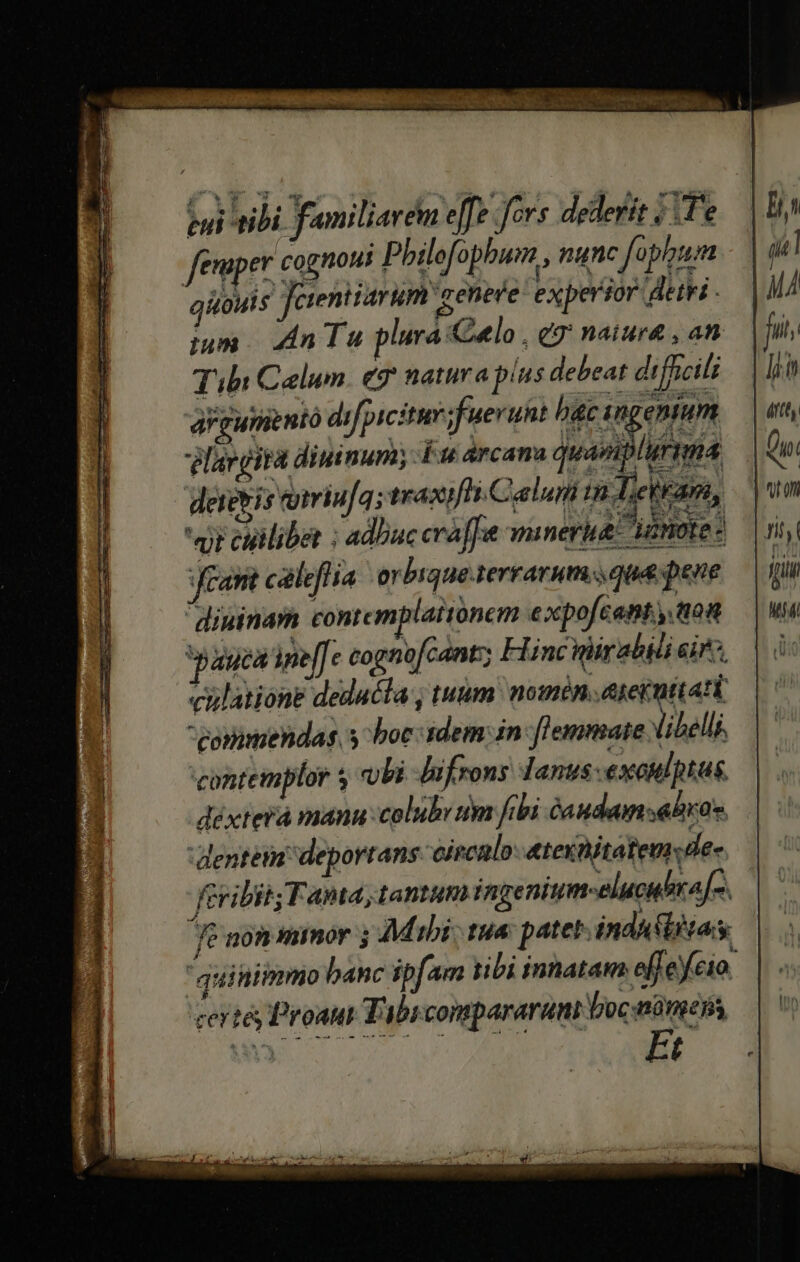 cui tibi familiarem esse fors dederit ; Te
semper cognoui Philosophum, nunc sophum
quouis scientiarum genere experior deiri.
tum An Tu plura Cælo, & naturæ, an
Tibi Cælum & natura plus debeat difficili
argumento dispicitur; fuerunt hæc ingenium
elargita diuinum; Eu arcana quamplurima
detexis vtriusq; traxisti Cælum in Terram,
vt cuilibet ; adhuc crassæ mineruæ innote-
scant cælestia orbisque terrarum, quæ pene
diuinam contemplationem exposcant, non
pauca inesse cognoscant; Hinc mirabili cir-
culatione deducta, tuum nomen æternitati
commendas, hoc idem in stemmate libelli
contemplor, vbi bifrons Ianus exculptus
dextera manu colubrum sibi caudam abro-
dentem deportans circulo æternitatem de-
scribit; Tanta, tantum ingenium elucubras-
se non minor ; Mihi tua patet industria;
quinimmo hanc ipsam tibi innatam esse scio
certe, Proaui Tibi compararunt hoc nomen,
Et